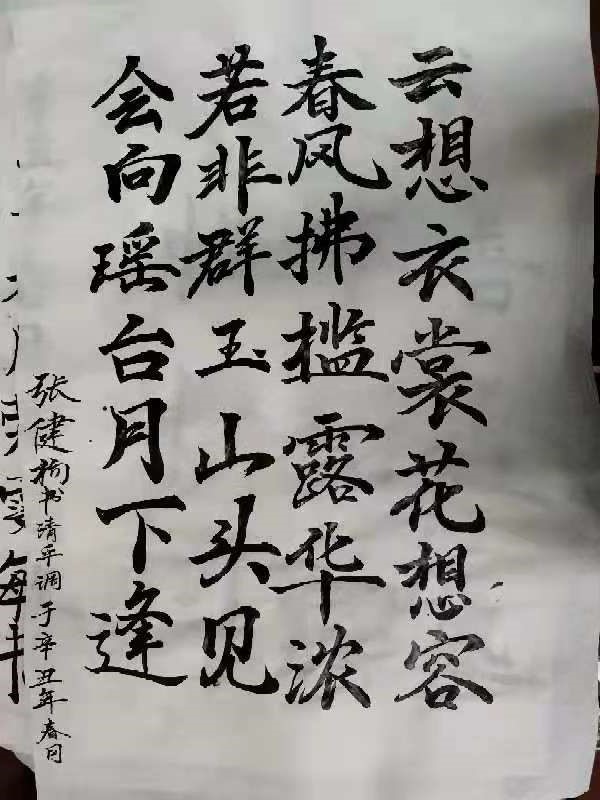 云想衣裳花想容
春风拂槛露华浓
若非群玉山头见
会向瑶台月下逢
张健榆书清平调于辛丑年春月